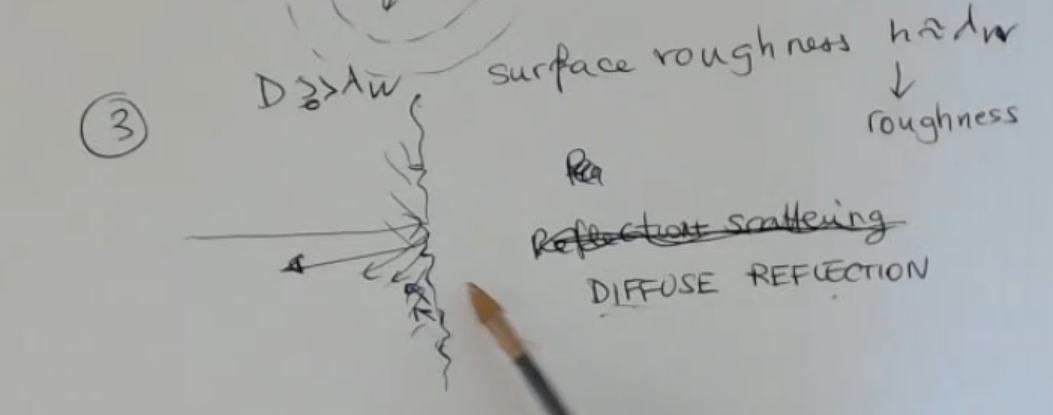 surface roughness h≈λw
D≥>λw
↓
③
roughness
Reflection scattering
DIFFUSE REFLECTION